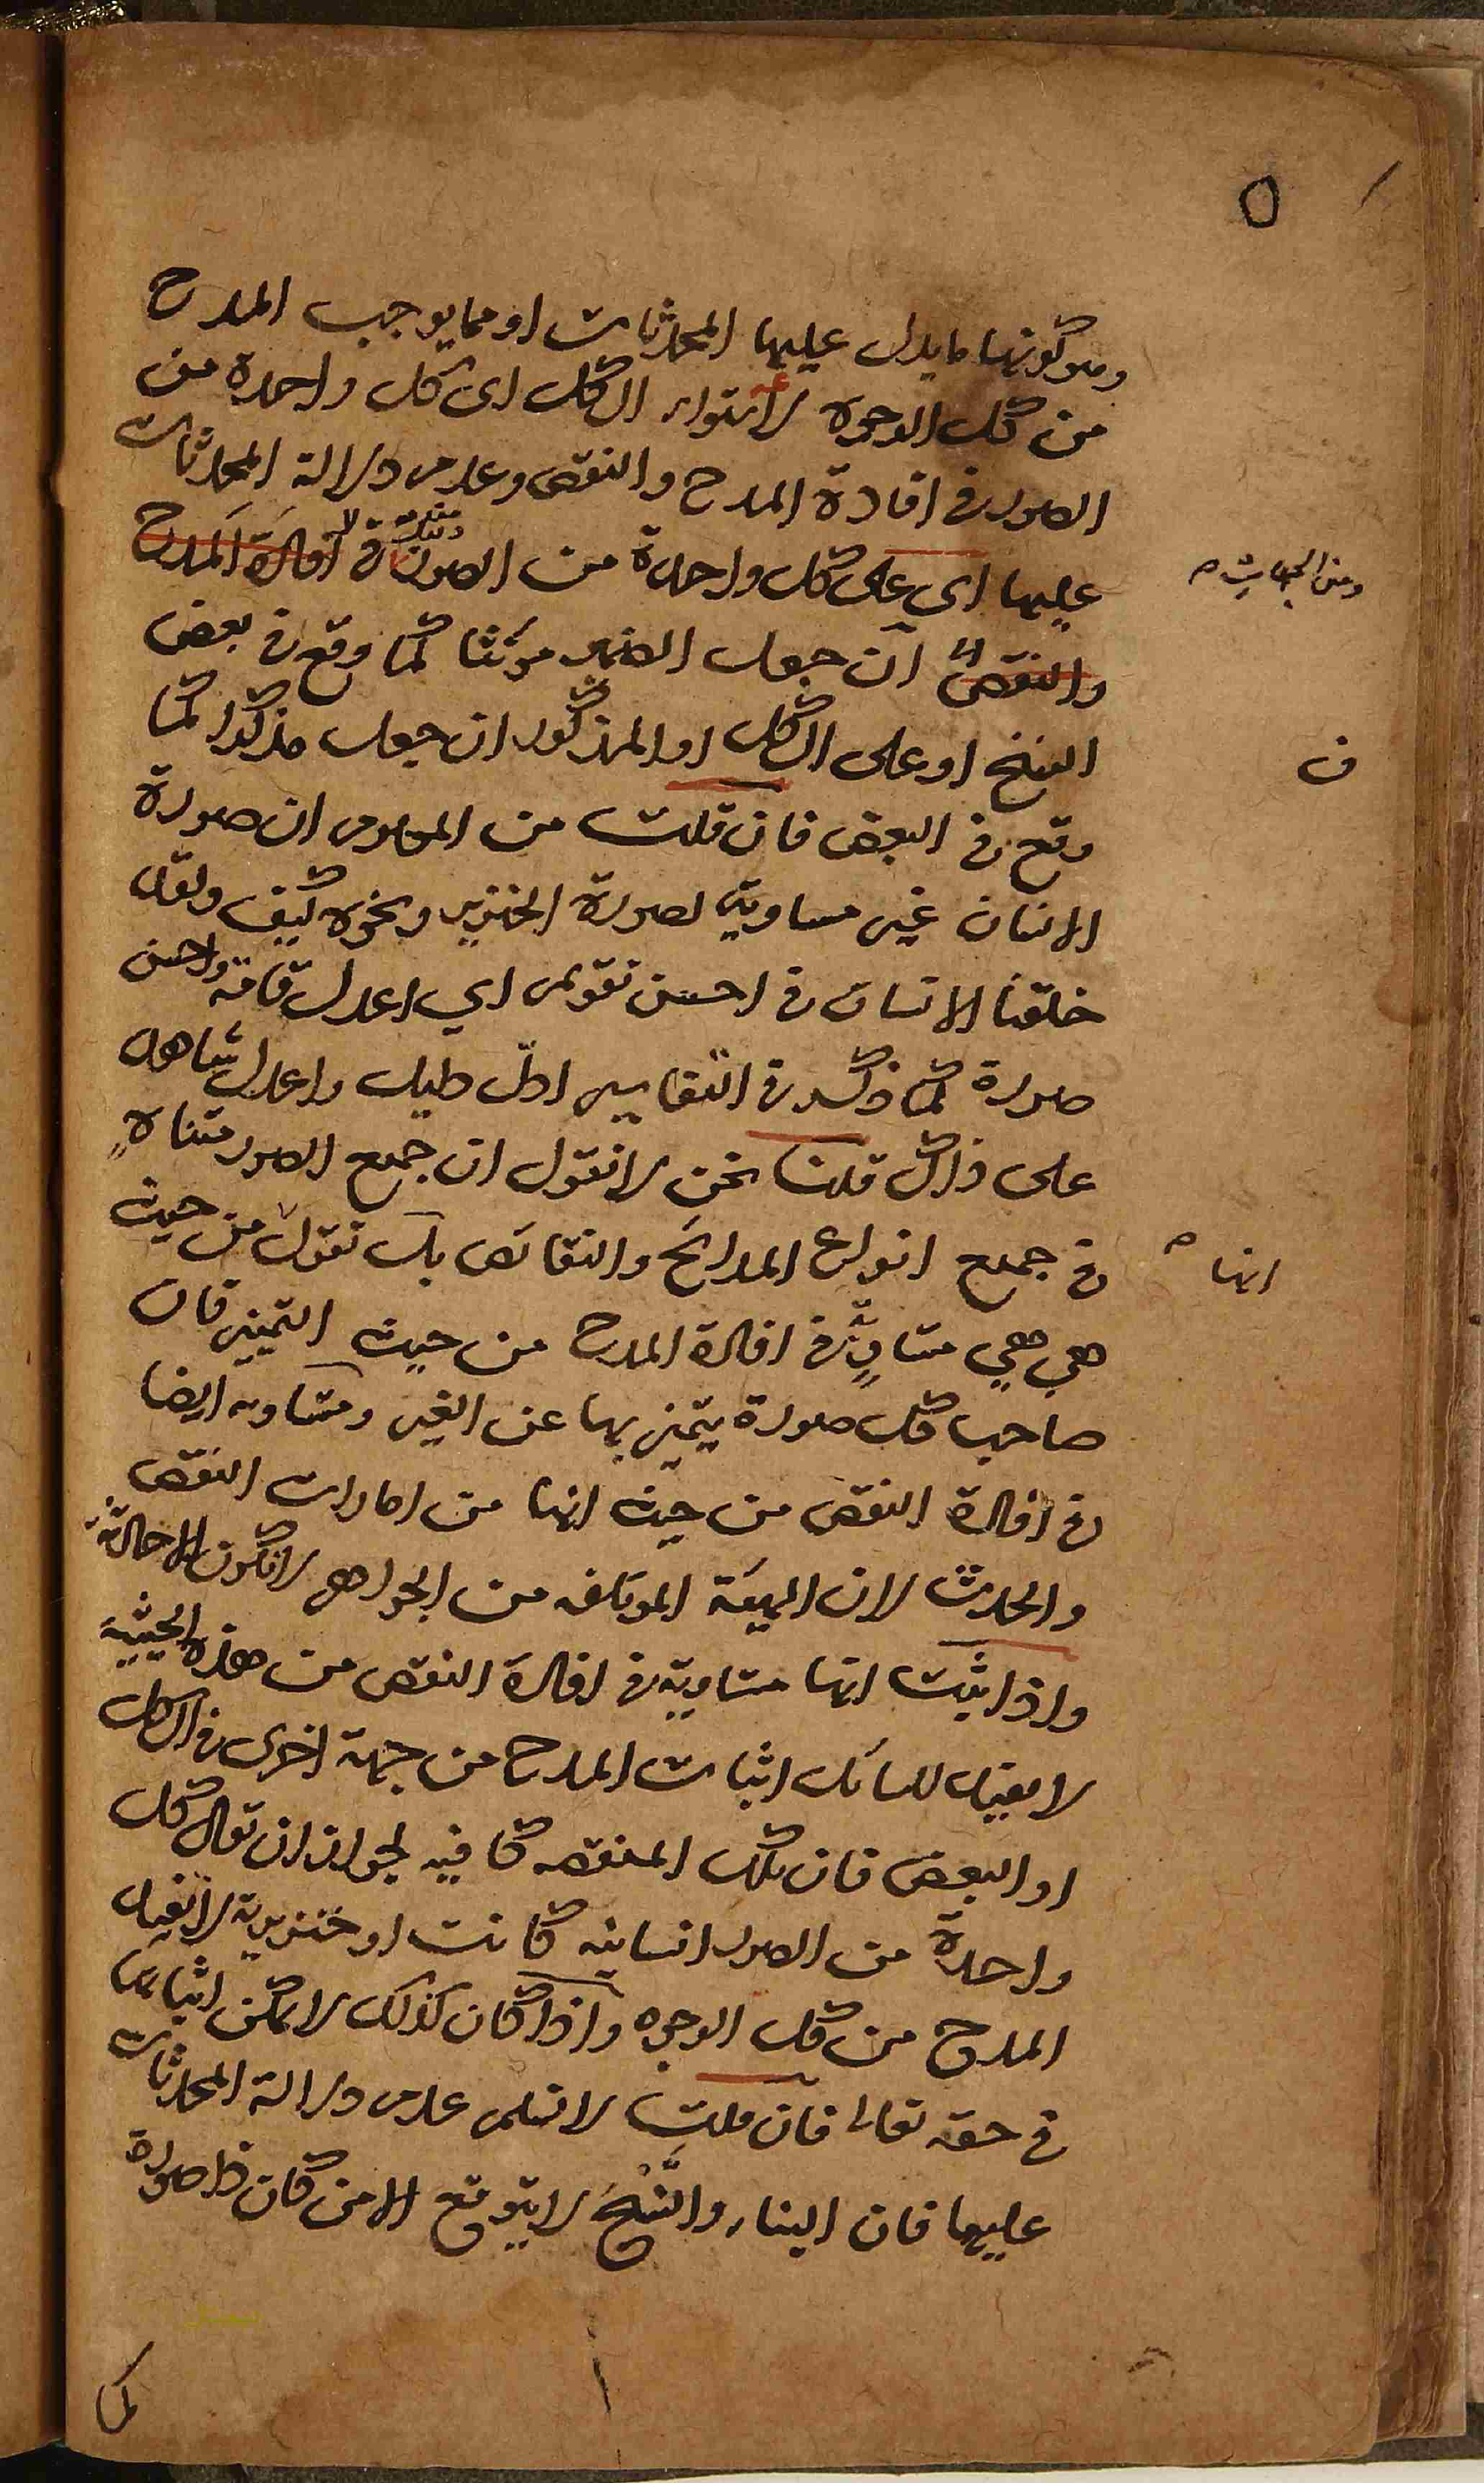 ٥
وهو كونها ما يدل عليها المحدثات او مما يوجب المدح
من كل الوجوه لاستواء الكل اى كل واحدة من
الصور فى افادة المدح والنقص وعدم دلالة المحدثات
عليها اى على كل واحدة من الصور فى افادة المدح
ومن الجهات
والنقص ان جعل الضمير مؤنثا كما وقع فى بعض
النسخ او على الكل او المذكور ان جعل مذكرا كما
ف
وقع فى البعض فان قلت من المعلوم ان صورة
الانسان غير مساوية لصورة الخنزير ونحوه كيف ولقد
خلقنا الانسان فى احسن تقويم اي اعدل قامة واحسن
صورة كما ذكر فى التفاسير ادل دليل واعدل شاهد
على ذلك قلنا نحن لا نقول ان جميع الصور متساوية
فى جميع انواع المدائح والنقائص بل نقول من حيث
انها
هي هي متساوية فى افادة المدح من حيث التميز فان
صاحب كل صورة يتميز بها عن الغير ومتساويه ايضا
فى افادة النقص من حيث انها من امارات النقص
والحدث لان الهيئة المؤلفه من الجواهر لا تكون الا حادثة
واذا ثبت انها متساوية فى افادة النقص من هذه الحيثية
لا يفيد للسائل اثبات المدح من جهة اخرى فى الكل
او البعض فان تلك المنقصه كافيه لجواز ان تقال كل
واحدة من الصور انسانيه كانت او خنزيرية لا تفيد
المدح من كل الوجوه واذا كان كذلك لا يمكن اثباتها
فى حقه تعالى فان قلت لا نسلم عدم دلالة المحدثات
عليها فان البناء والنسج لا يتوقع الا من كان ذا صورة
كما